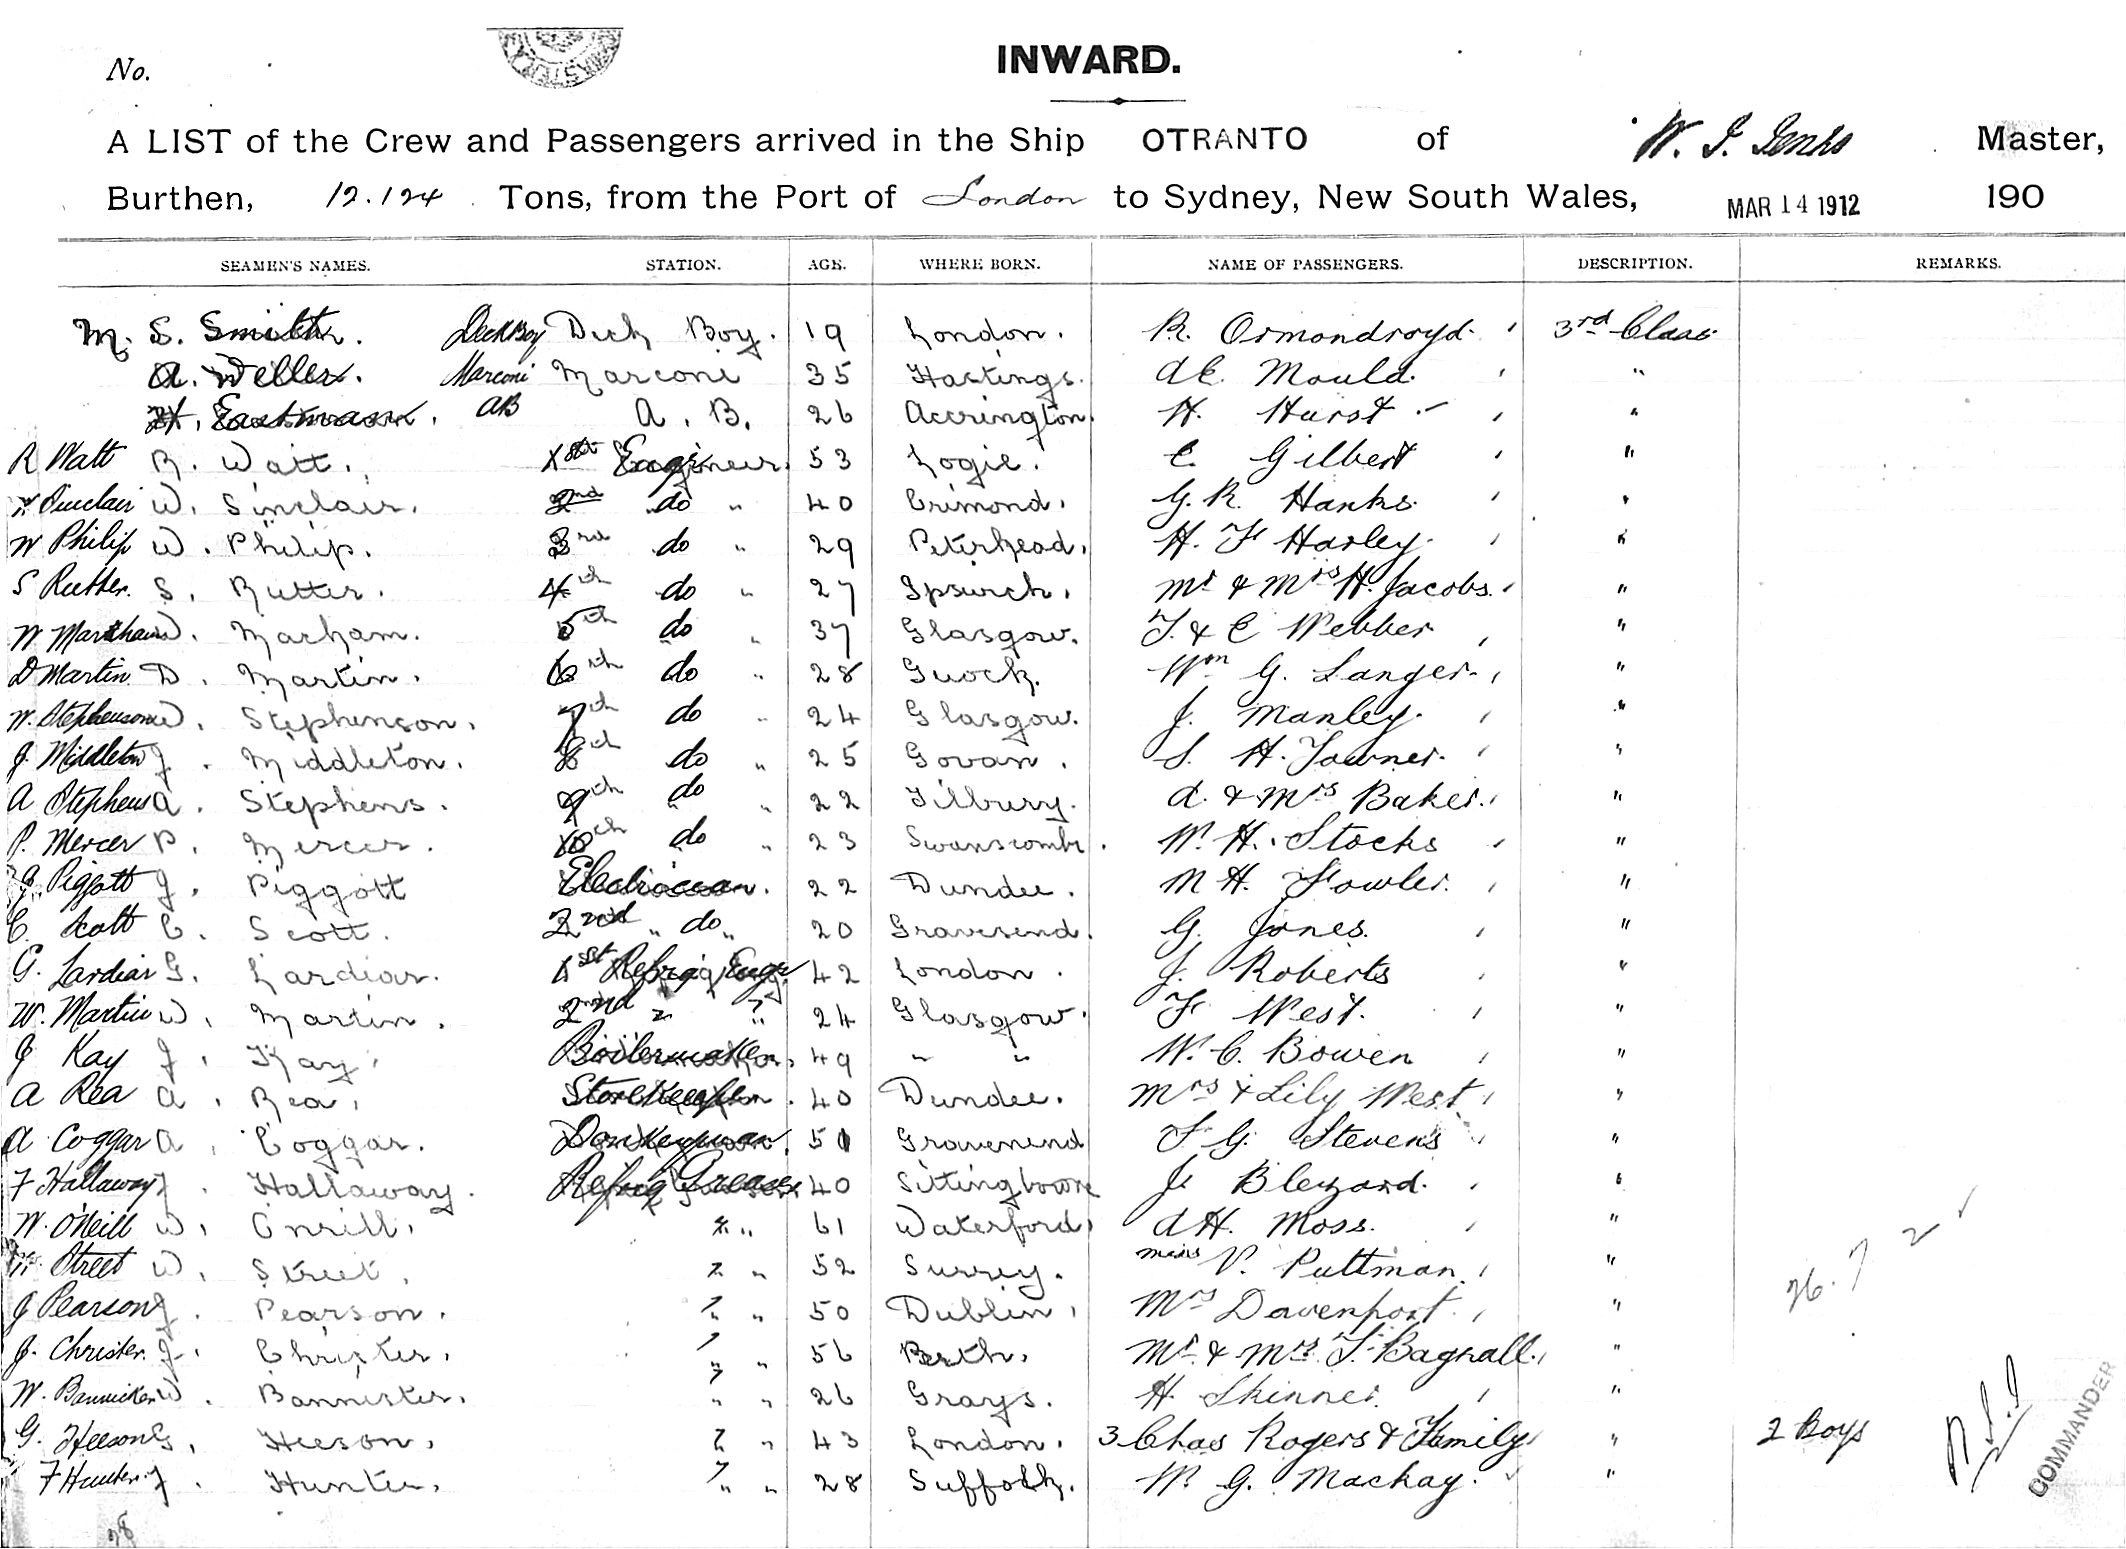 No.
INWARD.
A LIST of the Crew and Passengers arrived in the Ship OTRANTO of W. J. Jenks Master,
Burthen, 12.124 Tons, from the Port of London to Sydney, New South Wales, MAR 14 1912 190
SEAMEN'S NAMES. STATION. AGE. WHERE BORN. NAME OF PASSENGERS. DESCRIPTION. REMARKS.
M. S. Smith. Deck Boy Deck Boy. 19 London. R. Ormondroyd. 3rd Class
A. Weller. Marconi Marconi 35 Hastings. A E. Mould. "
H. Eastman. AB A. B. 26 Accrington. H. Hurst "
R Watt R. Watt. 1st Engineer. 53 Logie. E. Gilbert "
W Sinclair W. Sinclair. 2nd do " 40 Crimond. G. R. Hanks. "
W Philip W. Philip. 3rd do " 29 Peterhead. H. F Harley. "
S Rutter. S. Rutter. 4th do " 27 Ipswich. Mr & Mrs H. Jacobs. "
W Markham W. Macham. 5th do " 37 Glasgow. T. & E Webber "
D Martin D. Martin. 6th do " 28 Guock. Wm G. Langer. "
W. Stephenson W. Stephenson. 7th do " 24 Glasgow. J. Manley. "
J. Middleton J. Middleton. 8th do " 25 Govan. S. H. Towner. "
A Stephens A. Stephens. 9th do " 22 Tilbury. A. & Mrs Baker. "
P. Mercer P. Mercer. 10th do " 23 Swanscombe. W. H. Stocks "
J. Piggott J. Piggott Electrician. 22 Dundee. M H. Fowler. "
C. Scott C. Scott. 2nd " do " 20 Gravesend. G. Jones. "
G. Lardiar G. Lardiar. 1st Refrig Engr 42 London. J. Roberts "
W. Martin W. Martin. 2nd " " 24 Glasgow. F. West. "
J Kay J. Kay. Boilermaker. 49 " " W. C. Bowen "
A Rea A. Rea. Storekeeper. 40 Dundee. Mrs & Lily West "
A Coggar A. Coggar. Donkeyman. 51 Gravenend F G. Stevens "
F Hallaway F. Hallaway. Refrig Greaser 40 Sittingbourne J. Blezard. "
W. O'Neill W. Oneill. " " 61 Waterford. A H. Moss. "
W. Street W. Street. " " 52 Surrey. Miss V. Puttman. "
J Pearson J. Pearson. " " 50 Dublin. Mrs Davenport. "
J. Christer. J. Christer. " " 56 Perth. Mr & Mrs. T. Bagnall. "
W. Bannister W. Bannister. " " 26 Grays. H. Skinner. "
G. Heeson G. Heeson. " " 43 London. 3 Chas Rogers & Family " 2 Boys
F Hunter. F. Hunter. " " 28 Suffolk. W. G. Mackay. "
COMMANDER
28